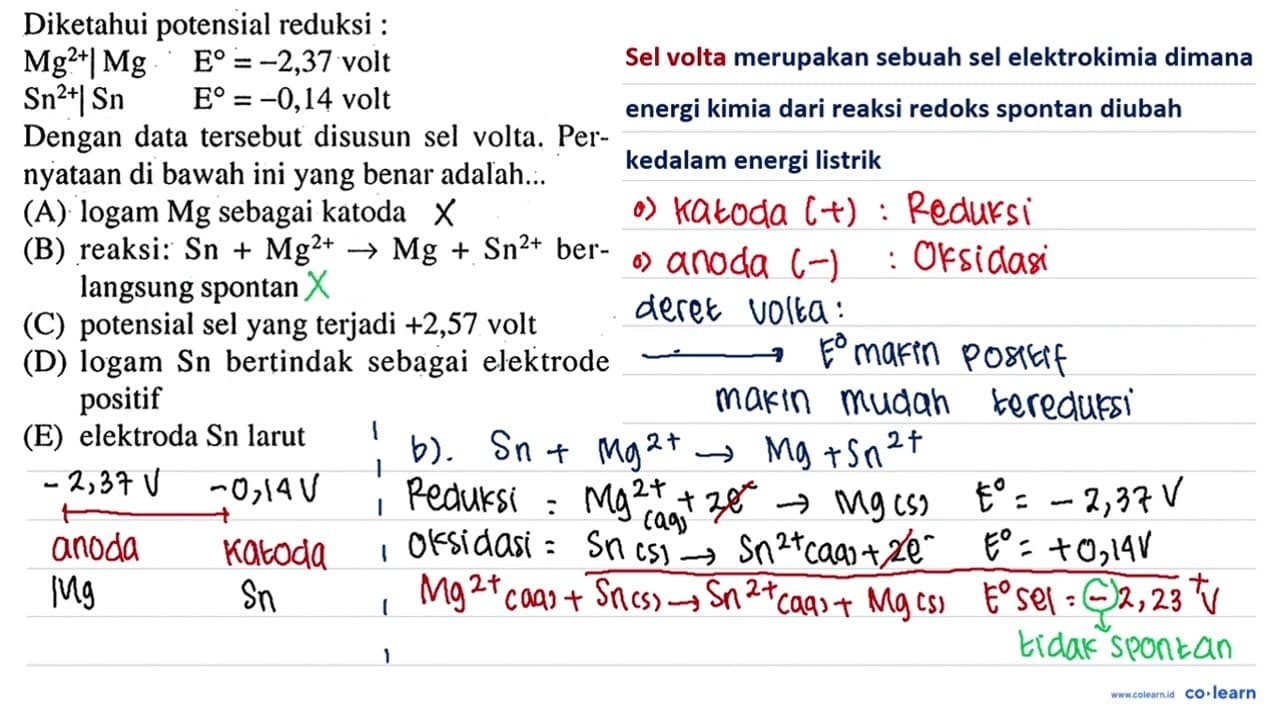 Diketahui potensial reduksi :
Mg²⁺| Mg E° = –2,37 volt
Sn²⁺| Sn E° = –0,14 volt
Dengan data tersebut disusun sel volta. Per-
nyataan di bawah ini yang benar adalah...
(A) logam Mg sebagai katoda X
(B) reaksi: Sn + Mg²⁺ → Mg + Sn²⁺ ber-
langsung spontan X
(C) potensial sel yang terjadi +2,57 volt
(D) logam Sn bertindak sebagai elektrode
positif
(E) elektroda Sn larut
Sel volta merupakan sebuah sel elektrokimia dimana
energi kimia dari reaksi redoks spontan diubah
kedalam energi listrik
•) Katoda (+) : Reduksi
•) anoda (–) : Oksidasi
deret volta :
→ E° makin positif
makin mudah tereduksi
- 2,37 V -0,14 V
anoda Katoda
Mg Sn
b). Sn + Mg²⁺ → Mg + Sn²⁺
Reduksi = Mg²⁺(aq) + 2e⁻ → Mg(s) E° = - 2,37 V
Oksidasi = Sn(s) → Sn²⁺(aq) + 2e⁻ E° = +0,14V
Mg²⁺(aq) + Sn(s) → Sn²⁺(aq) + Mg(s) E° sel = - 2,23 V
+
tidak spontan
www.colearn.id co·learn